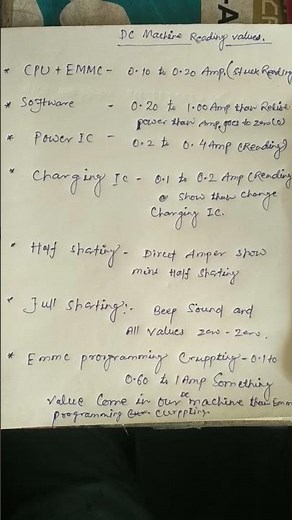 DC Machine Reading values.
* CPU + EMMC - 0.10 to 0.20 Amp (Stuck Reading
* Software - 0.20 to 1.00 Amp than Relise
power than Amp goes to zero (0)
* Power IC - 0.2 to 0.4 Amp (Reading)
* Charging IC - 0.1 to 0.2 Amp (Reading
@ Show than change
Charging IC.
* Half Shating - Direct Amper show
mins Half Shating
* Full Shating:- Beep Sound and
All values zero - zero.
* Emmc programming Cruppting - 0.1 to
0.60 to 1 Amp Something
value Come in our DC machine than Emm
programming curppting